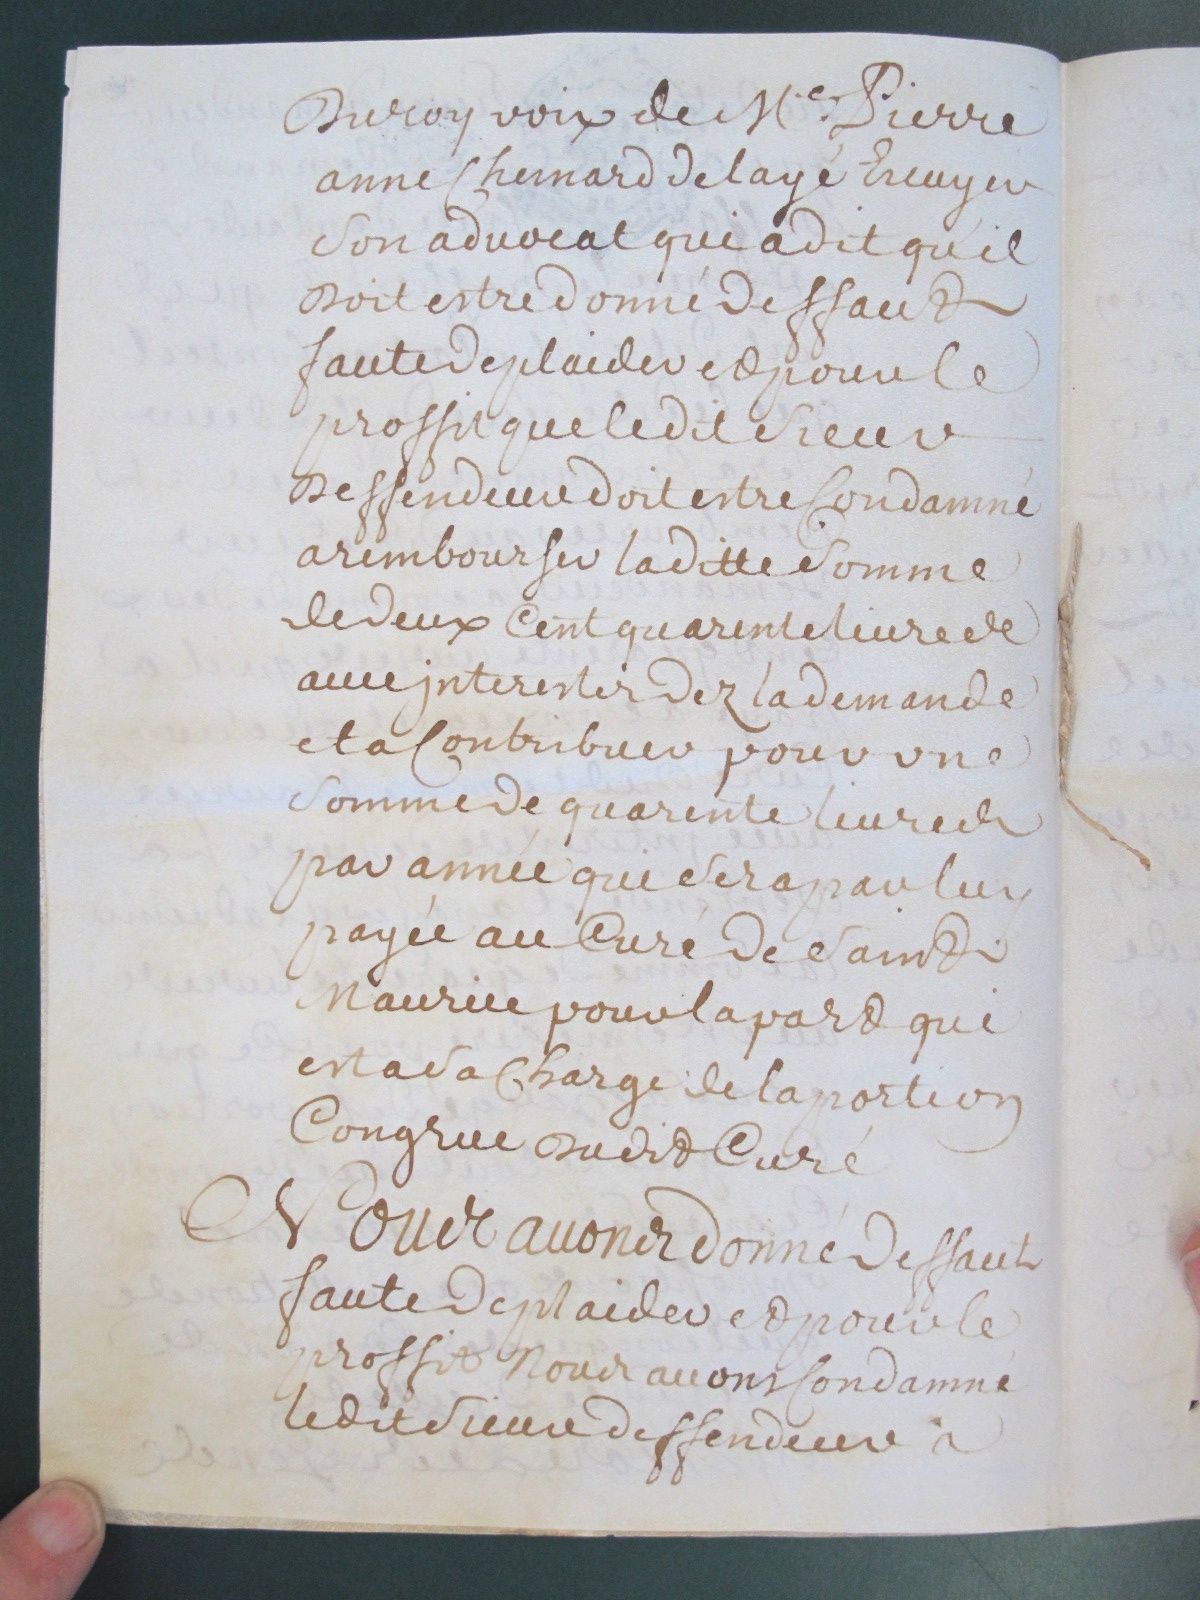 Du roy voix de Me. Pierre
anne Chemard de layé Ecuyer
son advocat qui a dit qu'il
doit estre donné deffaud
faute de plaider et pour le
proffit que ledit sieur
deffendeur doit estre Condamné
a rembourser laditte somme
de deux Cent quarente livres
avec jnterests dez la demande
et a Contribuer pour une
somme de quarente livres
par année qui sera par luy
payée au Curé de Saint
Maurice pour la part qui
est a sa Charge de la portion
Congrue dudit Curé
Nous avons donné deffaut
faute de plaider et pour le
proffit Nous avons Condamné
ledit sieur deffendeur a